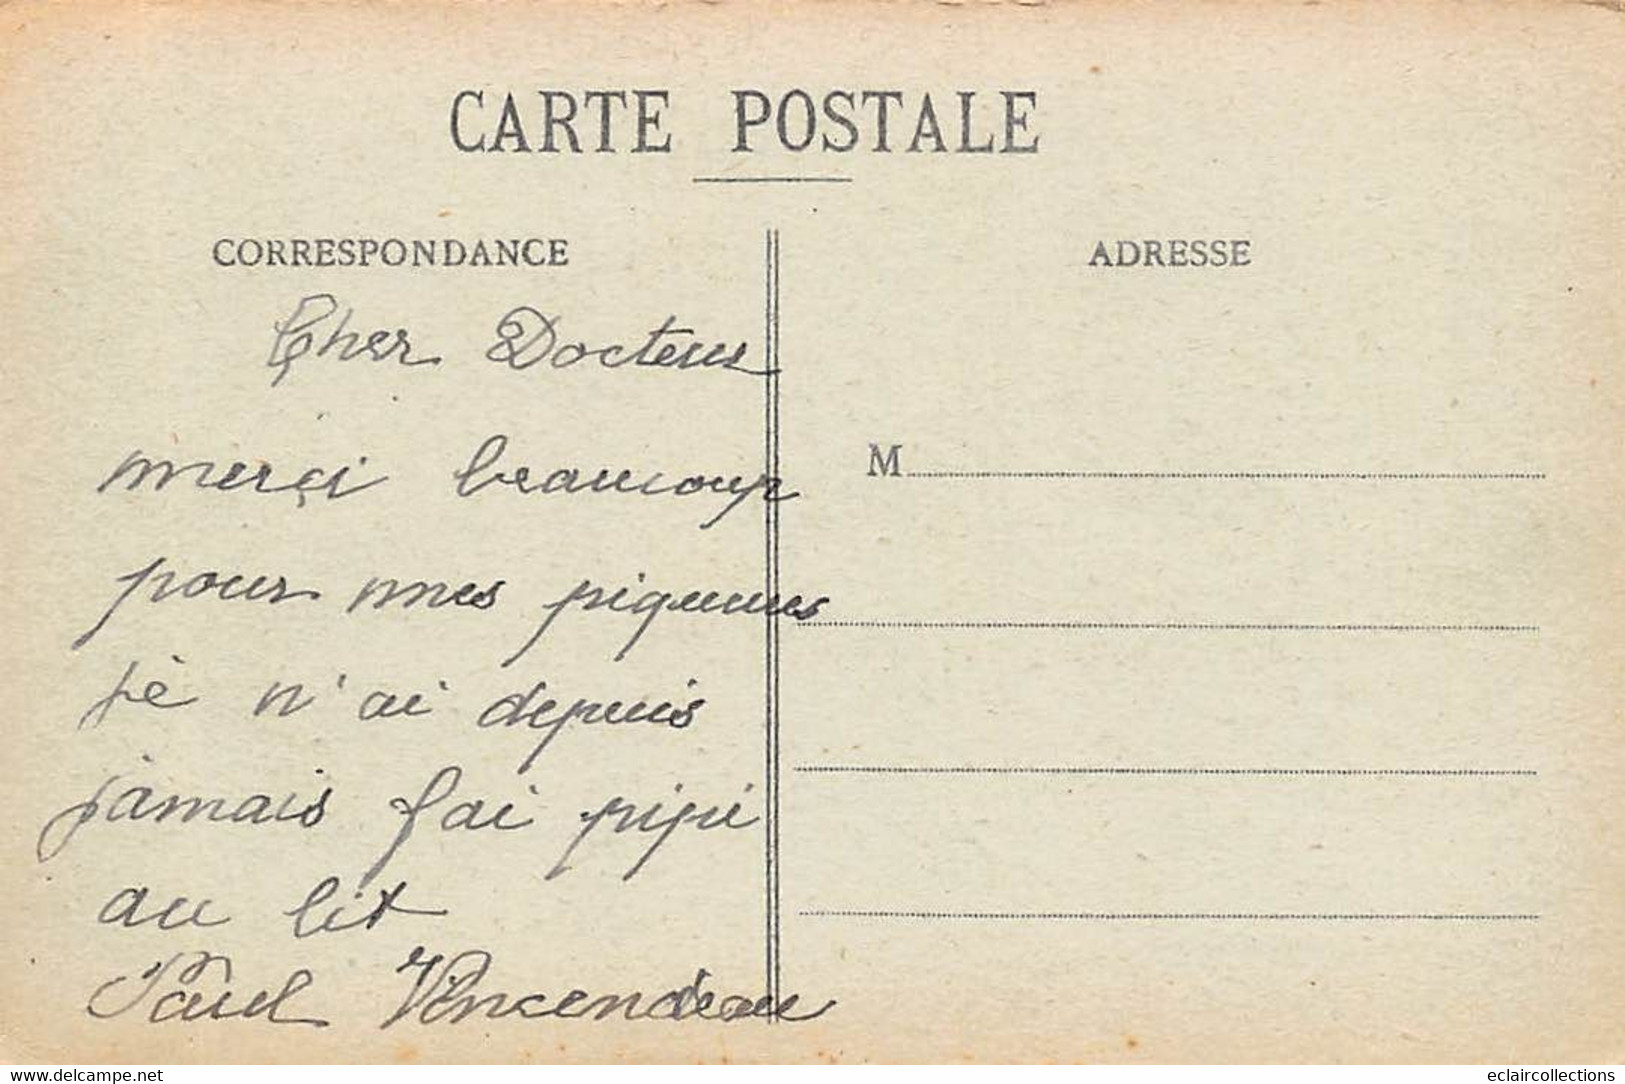 CARTE POSTALE
CORRESPONDANCE
Cher Docteur
merçi beaucoup
pour mes piqures
je n'ai depuis
jamais fai pipi
au lit
Paul Vincendeau
ADRESSE
M
www.delcampe.net
eclaircollections